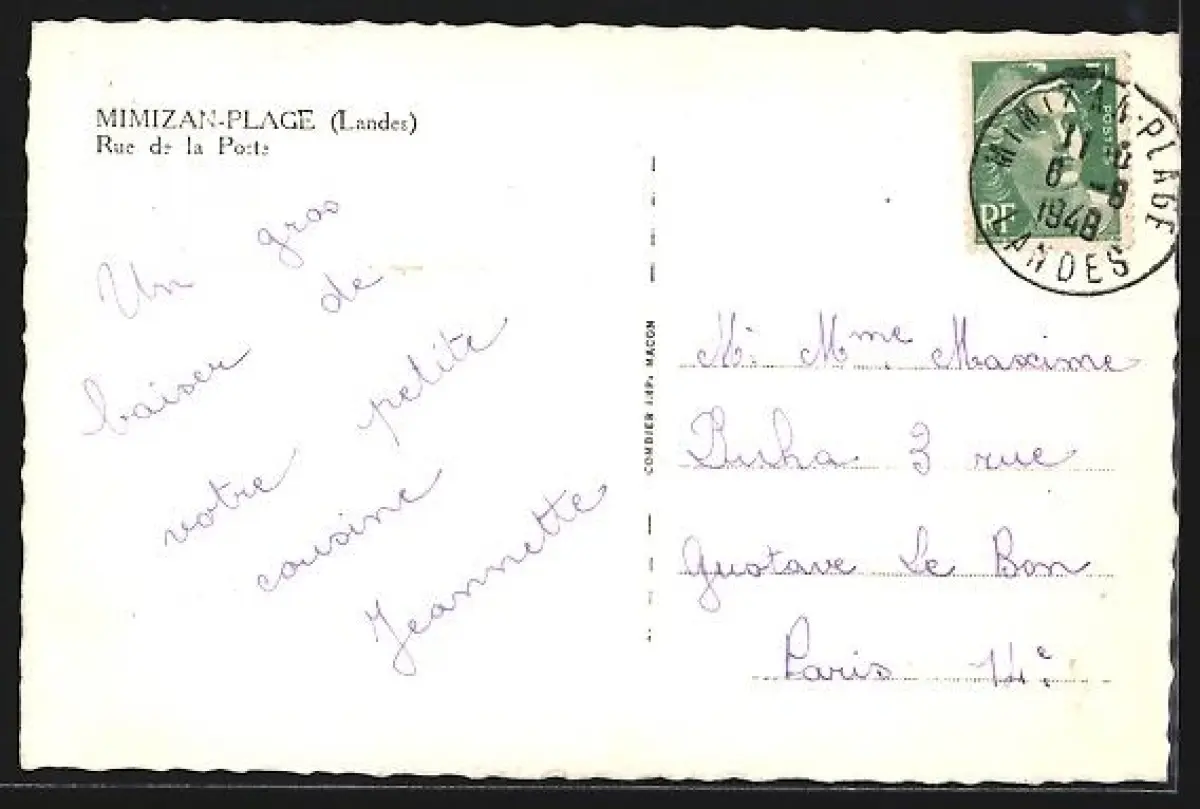 MIMIZAN-PLAGE (Landes)
Rue de la Poste
Un gros
baiser de
votre petite
cousine
Jeannette
COMBIER IMP. MACON
POSTES
RF
MIMIZAN-PLAGE
1948
LANDES
M. Mme Maxime
3 rue
Gustave Le Bon
Paris 14e